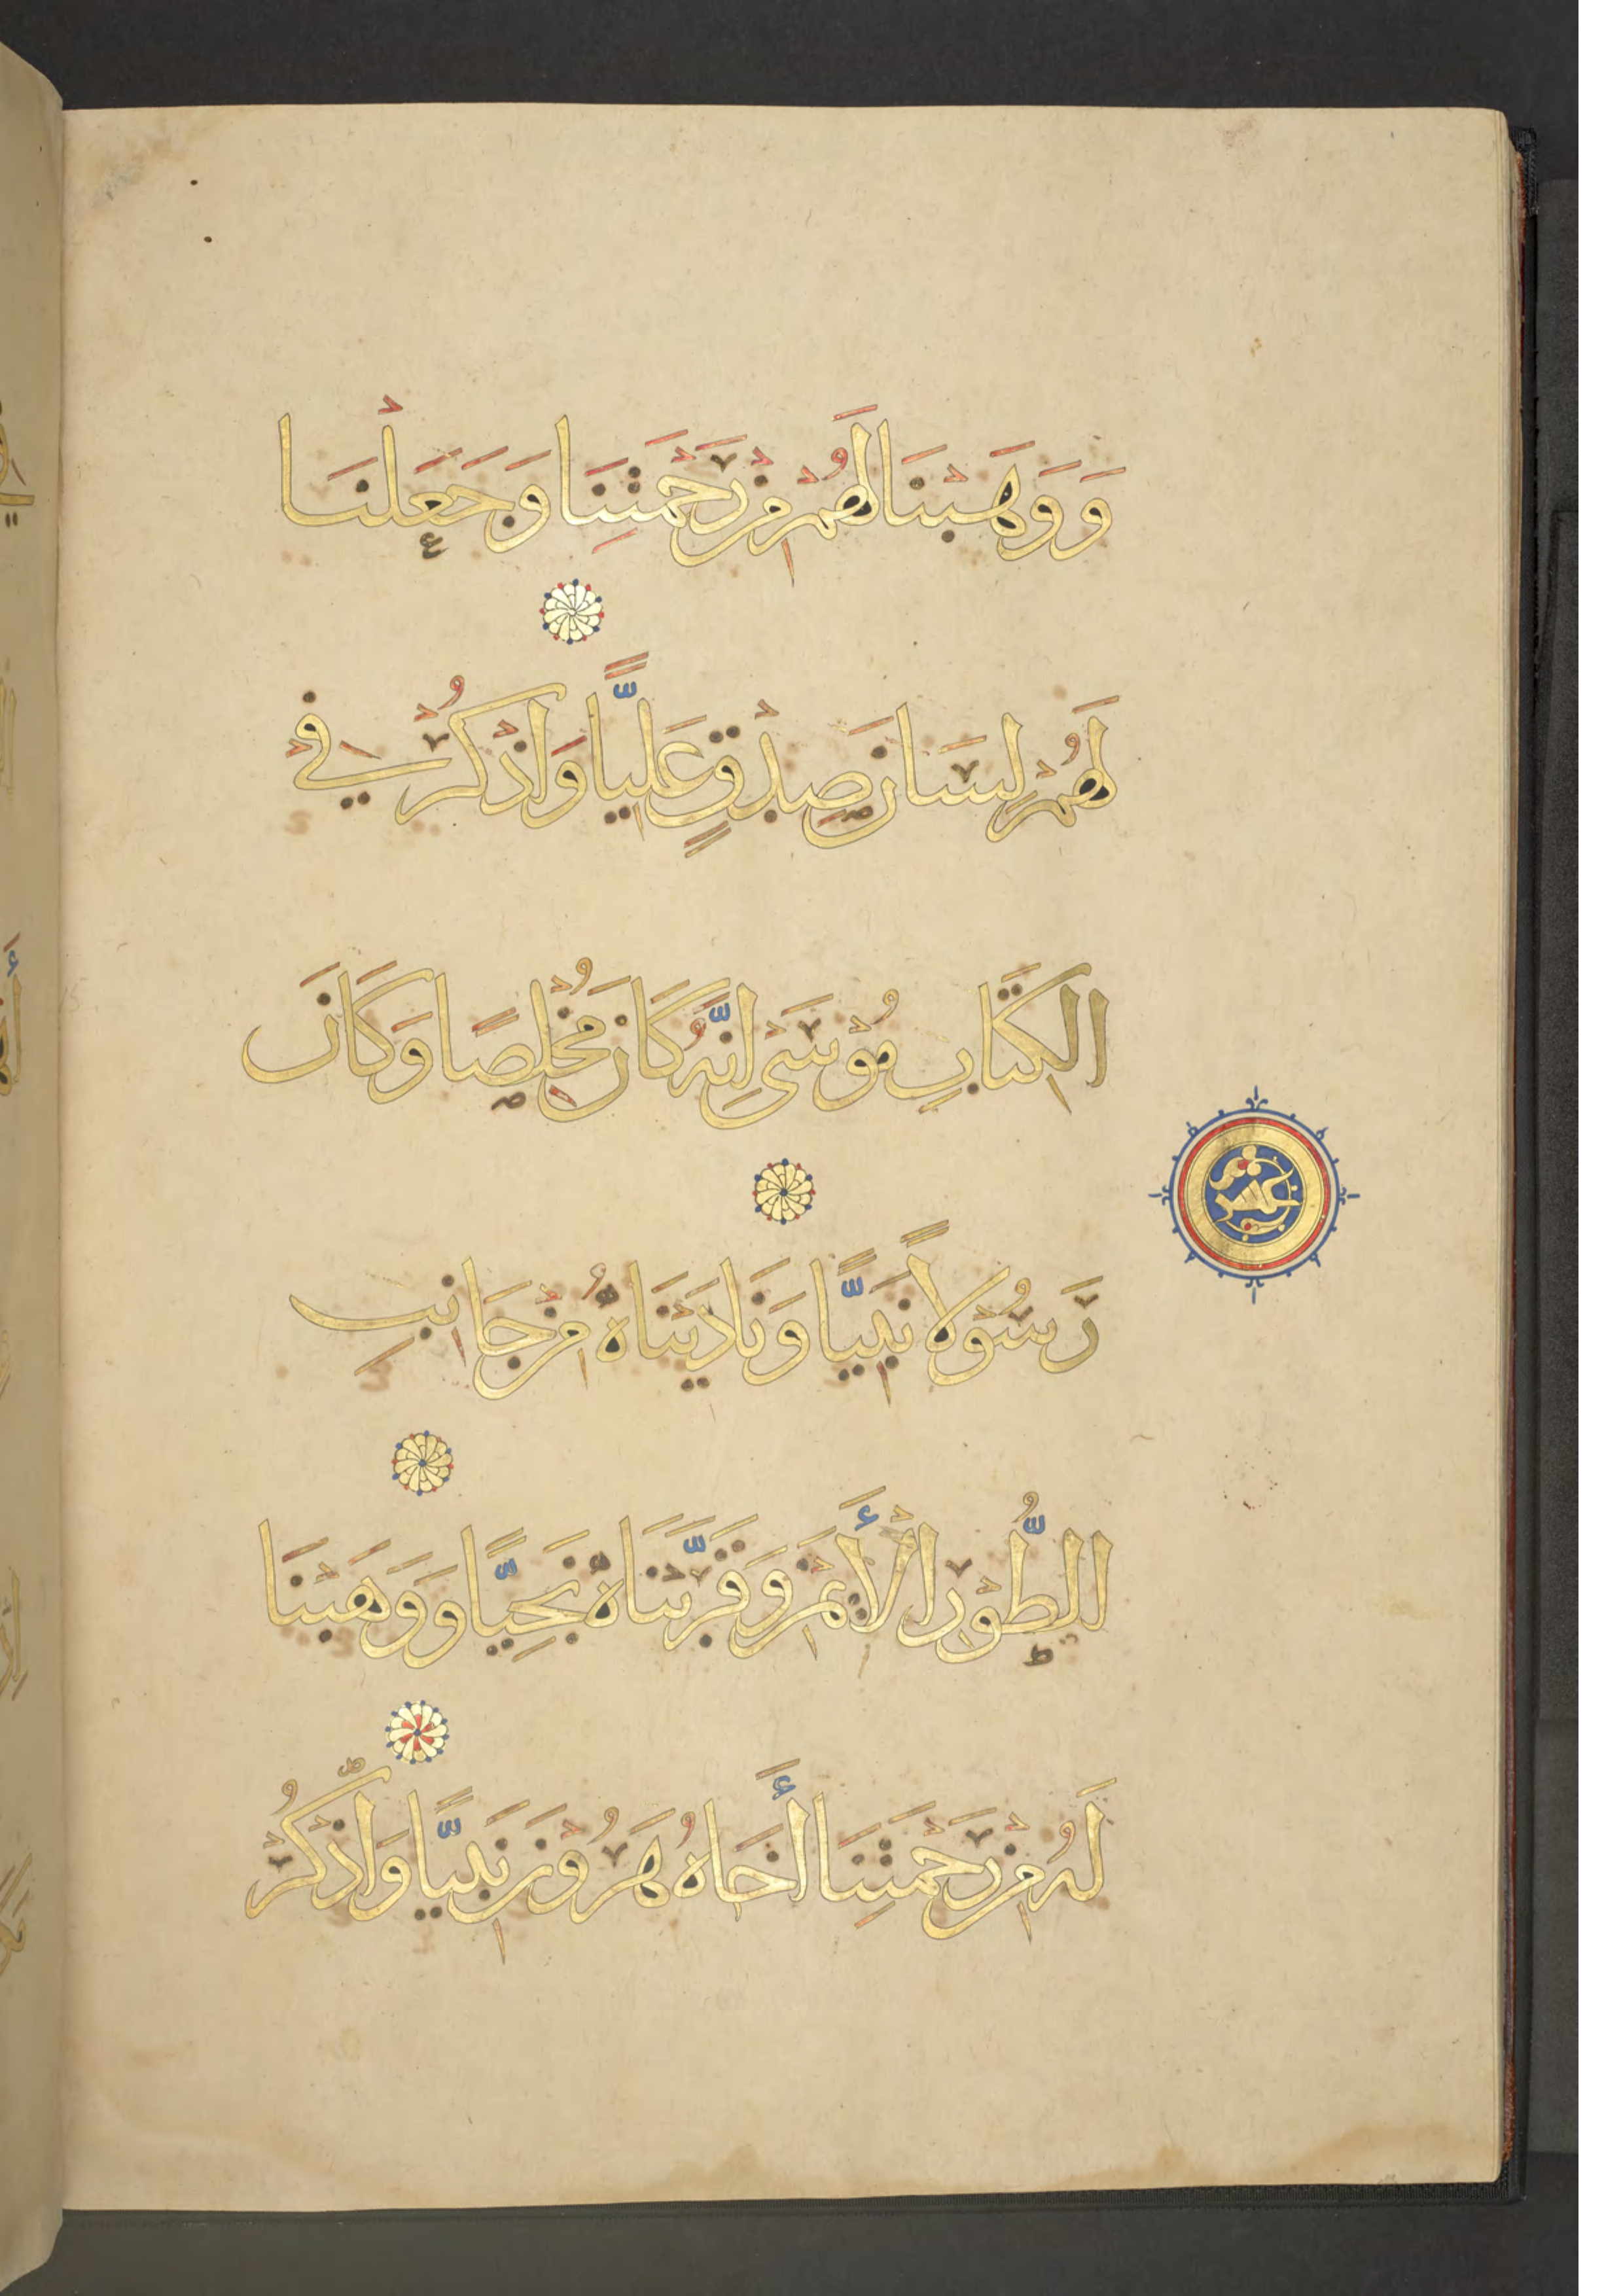 وَوَهَبْنَا لَهُمْ مِنْ رَحْمَتِنَا وَجَعَلْنَا
لَهُمْ لِسَانَ صِدْقٍ عَلِيًّا وَاذْكُرْ فِي
الْكِتَابِ مُوْسَى إِنَّهُ كَانَ مُخْلِصًا وَكَانَ
رَسُوْلًا نَبِيًّا وَنَادَيْنَاهُ مِنْ جَانِبِ
الطُّوْرِ الْأَيْمَنِ وَقَرَّبْنَاهُ نَجِيًّا وَوَهَبْنَا
لَهُ مِنْ رَحْمَتِنَا أَخَاهُ هَرُوْنَ نَبِيًّا وَاذْكُرْ